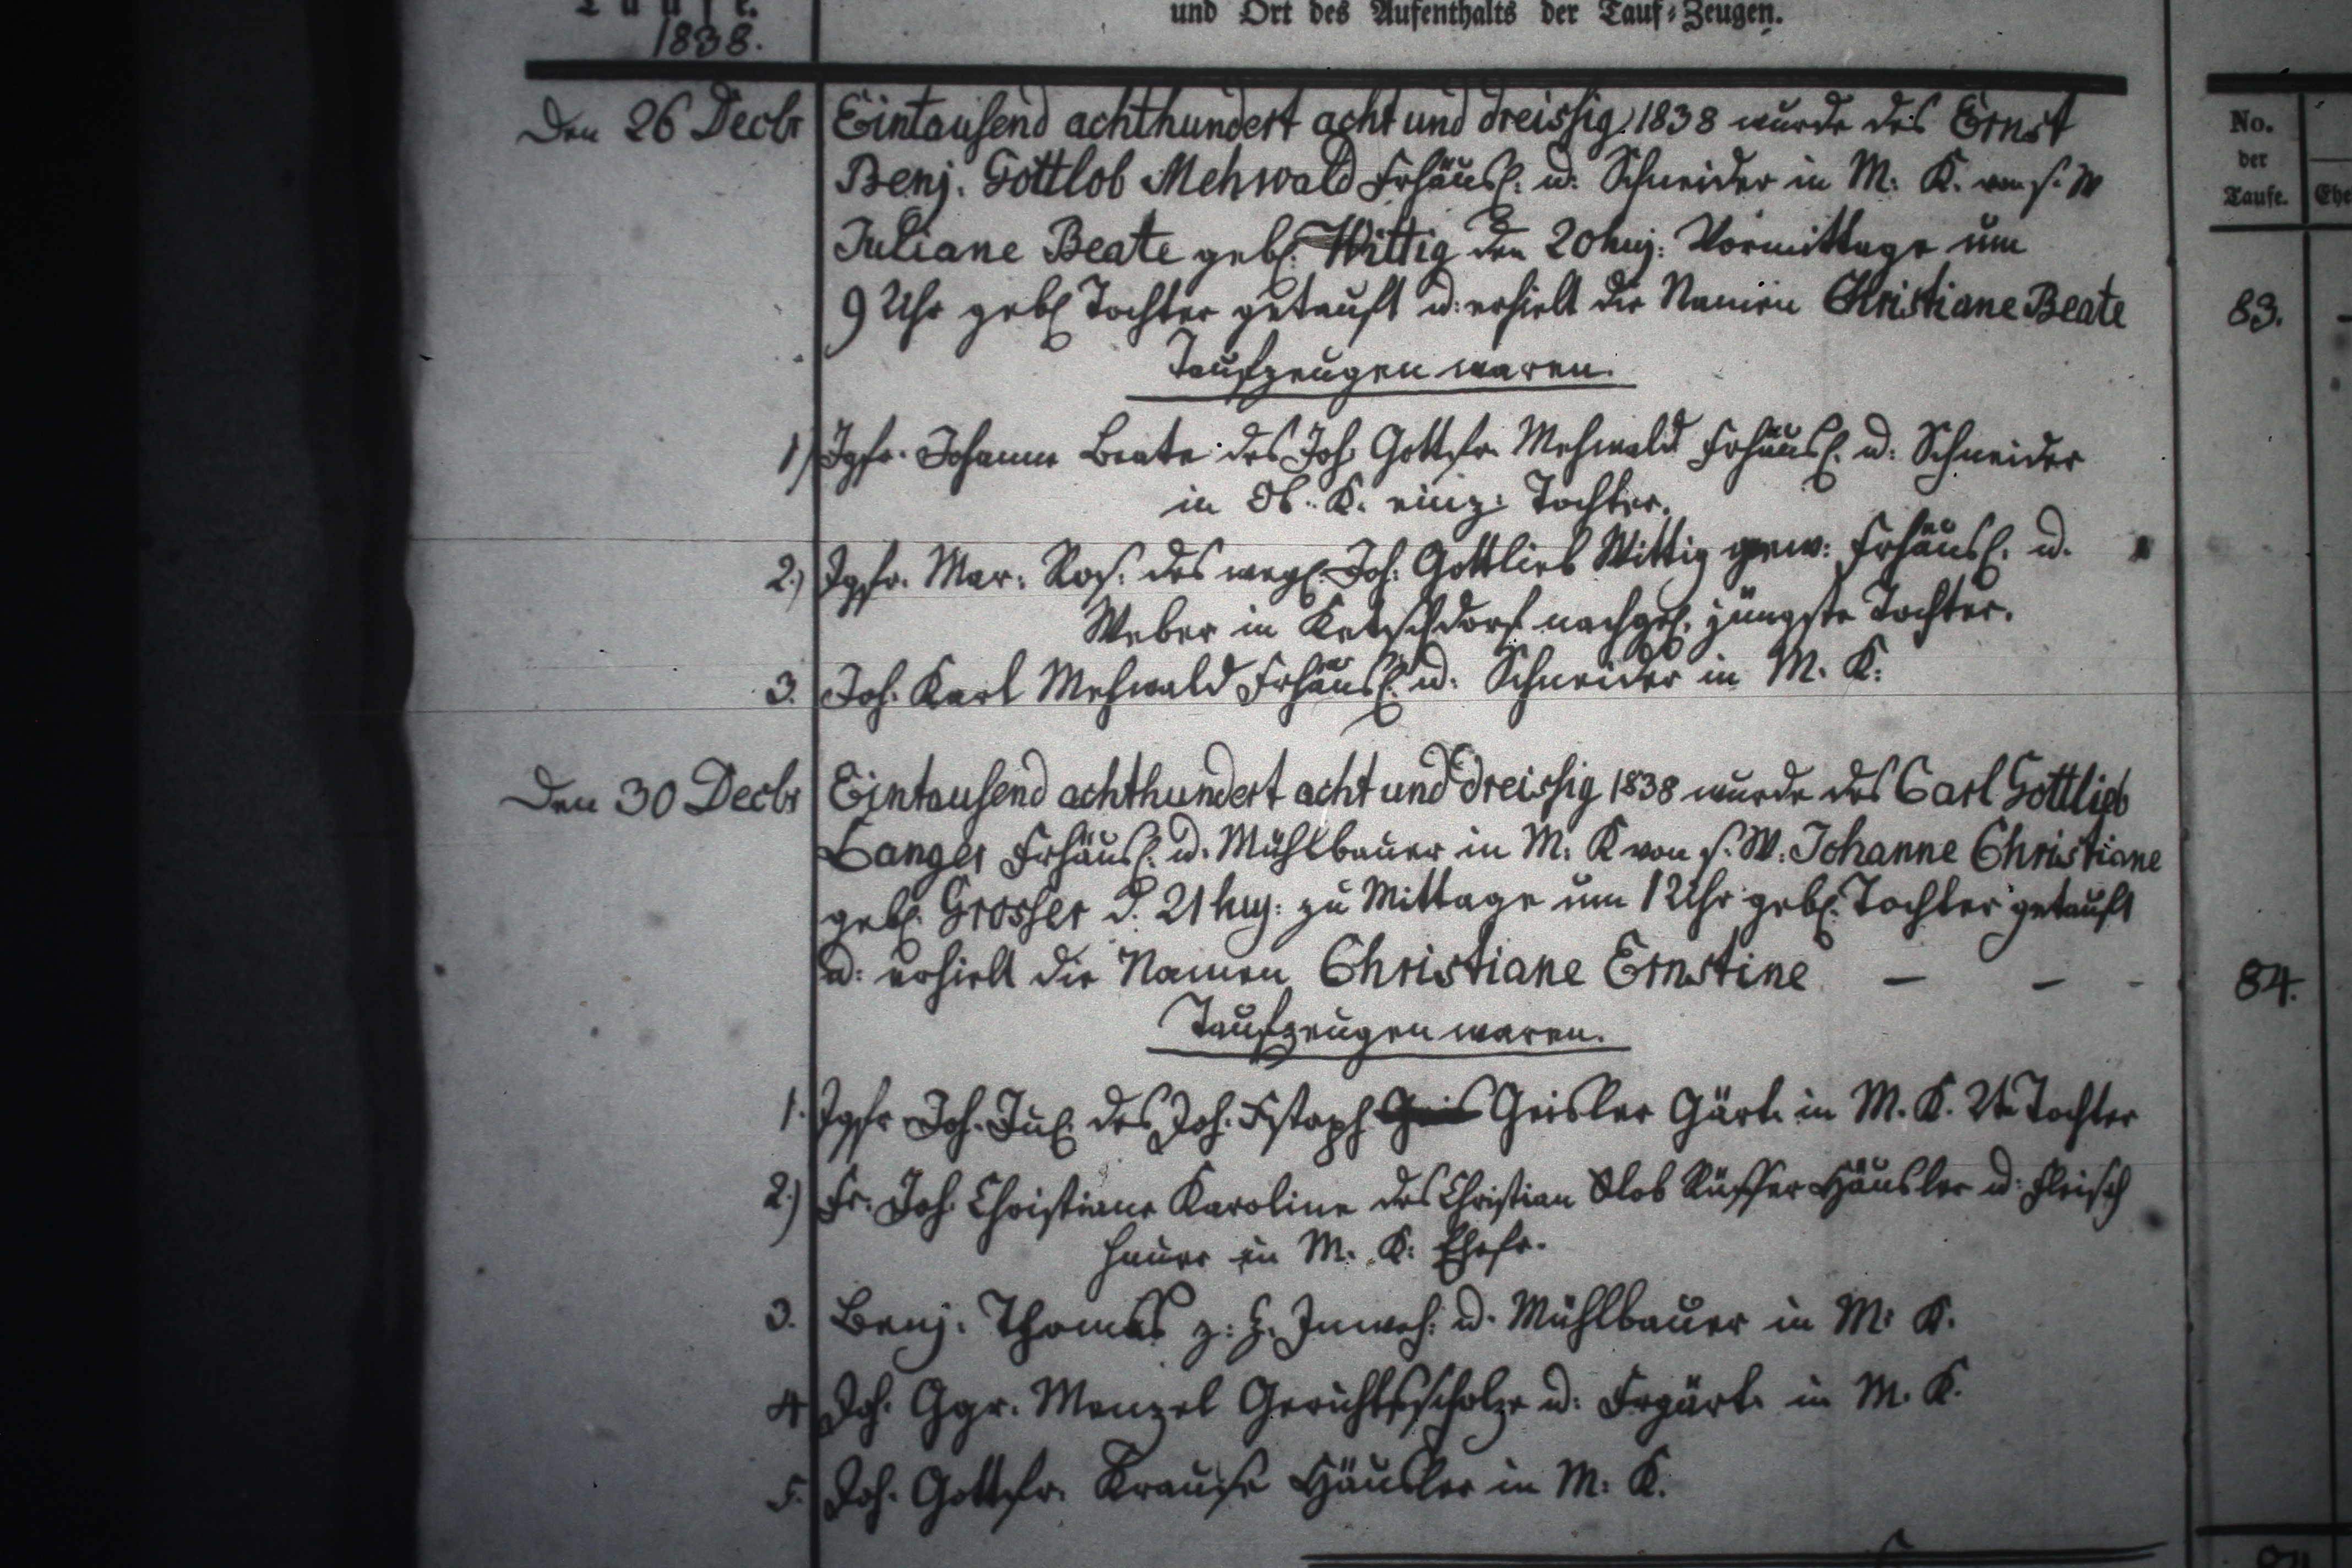 Taufe.
1838.
und Ort des Aufenthalts der Tauf-Zeugen.
Den 26 Decbr
Eintausend achthundert acht und dreissig 1838 wurde des Ernst
Benj. Gottlob Mehwald Frhäusl. u. Schneider in M. K. von s. W
Juliane Beate geb. Wittig den 20 huj. Vormittags um
9 Uhr geb. Tochter getauft u. erhielt die Namen Christiane Beate
Taufzeugen waren.
1) Jgfr. Johanne Beate des Joh. Gottfr. Mehwald Frhäusl. u. Schneider
in Ob. K. einz. Tochter.
2.) Jgfr. Mar. Ros. des weyl. Joh. Gottlieb Wittig gew. Frhäusl. u.
Weber in Ketschdorf nachgel. jüngste Tochter.
3. Joh. Karl Mehwald Frhäusl. u. Schneider in M. K.
No.
der
Taufe.
Ehe
83.
Den 30 Decbr
Eintausend achthundert acht und dreissig 1838 wurde des Carl Gottlieb
Langer Frhäusl. u. Mühlbauer in M. K von s. W. Johanne Christiane
geb. Grosser d. 21 huj. zu Mittage um 12 Uhr geb. Tochter getauft
u. erhielt die Namen Christiane Ernstine — — -
84.
Taufzeugen waren.
1. Jgfr. Joh. Jul. des Joh. Geisler Gärt. in M. K. Tochter
2.) Fr. Joh. Christiane Karoline des Christian Glob Rüffer Häusler u. Fleisch
hauer in M. K. Ehefr.
3. Benj. Thomas z. Z. Inwoh. u. Mühlbauer in M. K.
4 Joh. Ggr. Menzel Gerichtsscholze u. Frgärt. in M. K.
5. Joh. Gottfr. Krause Häusler in M. K.